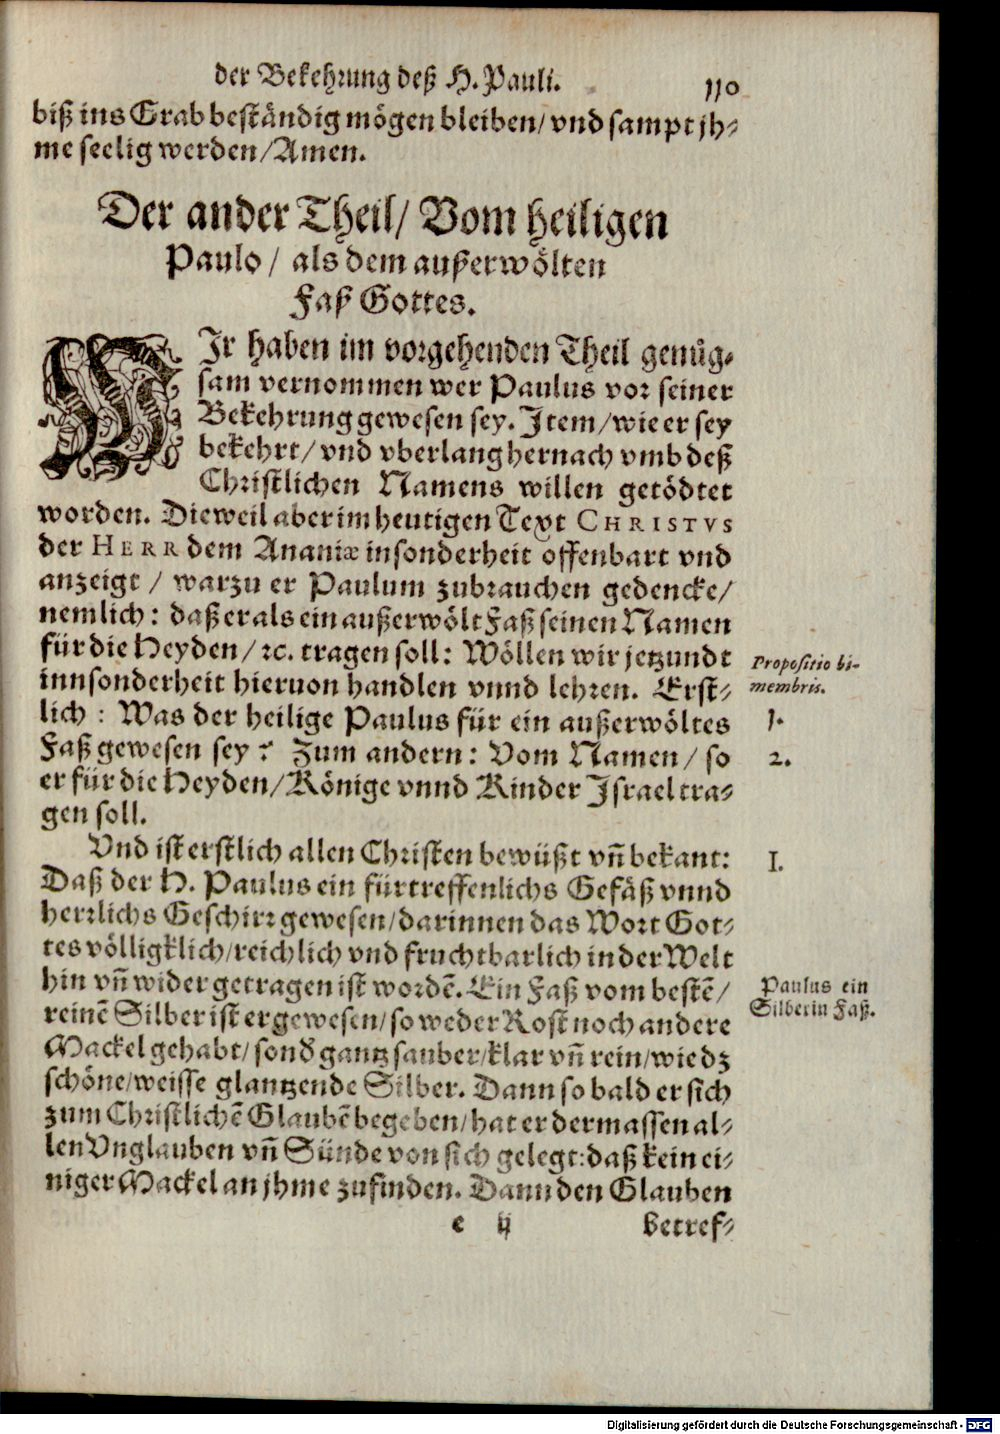 der Bekehrung deß H. Pauli. 110
biß ins Grab beständig mögen bleiben/ vnd sampt jh-
me seelig werden/Amen.
Der ander Theil/ Vom heiligen
Paulo/ als dem außerwölten
Faß Gottes.
WIr haben im vorgehenden Theil genüg-
sam vernommen wer Paulus vor seiner
Bekehrung gewesen sey. Item/wie er sey
bekehrt/ vnd vberlang hernach vmb deß
Christlichen Namens willen getödtet
worden. Dieweil aber im heutigen Text CHRISTVS
der HERR dem Ananiæ insonderheit offenbart vnd
anzeigt/ warzu er Paulum zubrauchen gedencke/
nemlich: daß er als ein außerwölt Faß seinen Namen
für die Heyden/ ꝛc. tragen soll: Wöllen wir jetzundt
innsonderheit hieruon handlen vnnd lehren. Erst-
Propositio bi-
membris.
lich: Was der heilige Paulus für ein außerwöltes
1.
Faß gewesen sey? Zum andern: Vom Namen/ so
2.
er für die Heyden/Könige vnnd Kinder Israel tra-
gen soll.
Vnd ist erstlich allen Christen bewüßt vñ bekant:
I.
Daß der H. Paulus ein fürtreffenlichs Gefäß vnnd
herrlichs Geschirr gewesen/darinnen das Wort Got-
tes völligklich/reichlich vnd fruchtbarlich in der Welt
hin vñ wider getragen ist wordẽ. Ein Faß vom bestẽ/
Paulus ein
Silberin Faß.
reinẽ Silber ist er gewesen/so weder Rost noch andere
Mackel gehabt/sonď gantz sauber/klar vñ rein/wie dz
schöne/weisse glantzende Silber. Dann so bald er sich
zum Christlichẽ Glaubẽ begeben/hat er dermassen al-
len Vnglauben vñ Sünde von sich gelegt:daß kein ei-
niger Mackel an jhme zufinden. Dann den Glauben
e ij betref-
Digitalisierung gefördert durch die Deutsche Forschungsgemeinschaft - DFG